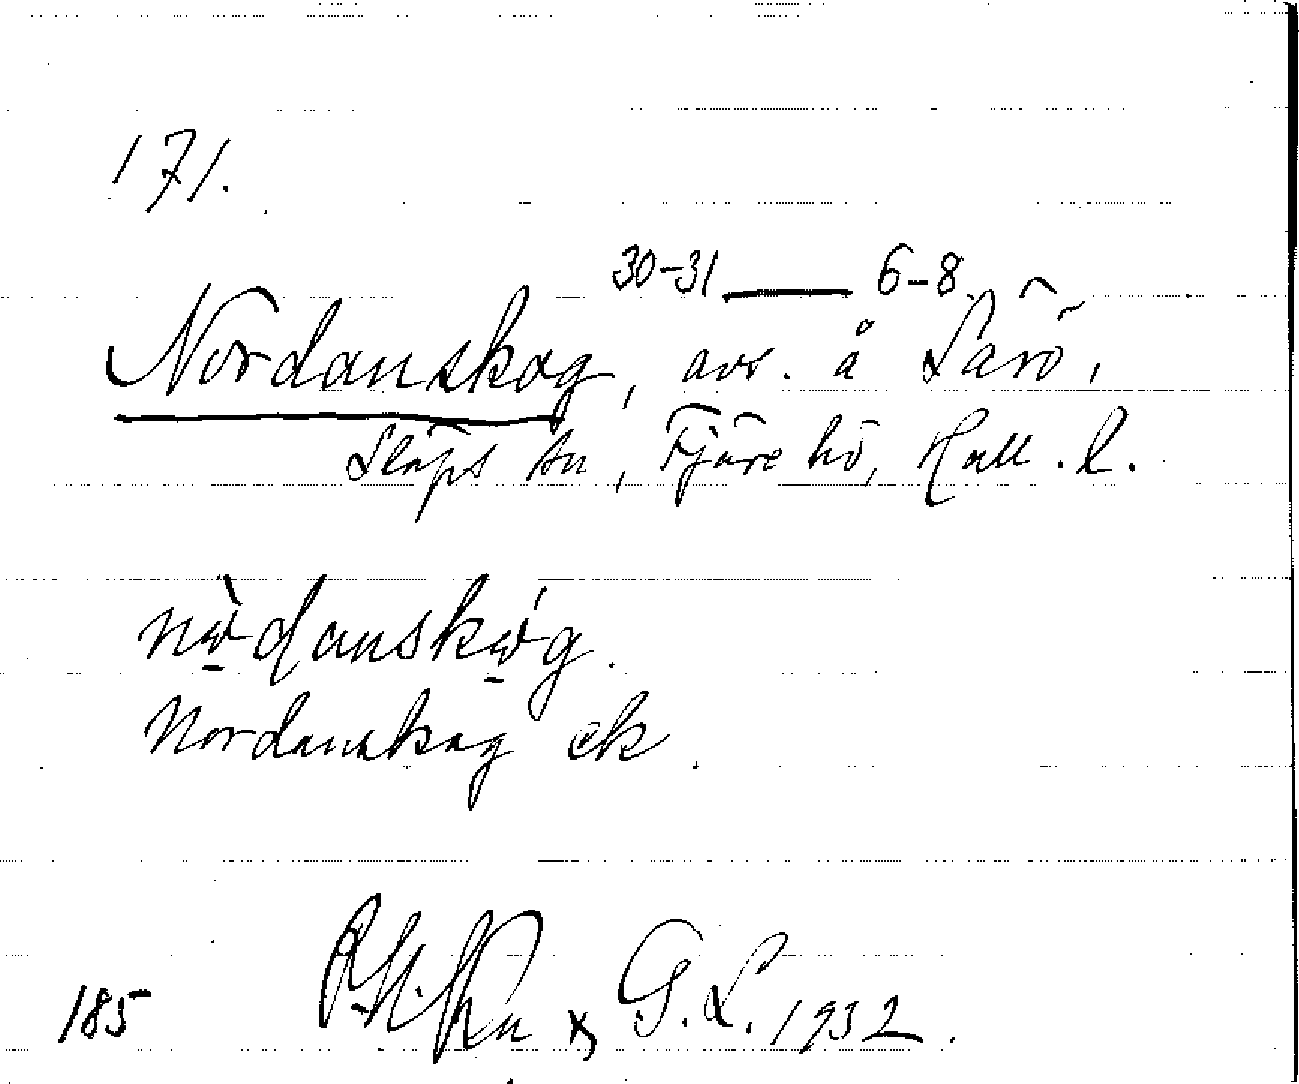 171.
30-31 — 6-8
Nordanskog, avs. å Särö,
Släps sn, Fjäre hd, Hall. l.
nòdanskóg.
Nordanskog ek
185 G. L. 1932.